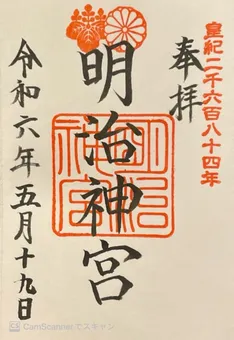 皇紀二千六百八十四年
奉拝
明治神宮
明治神宮
令和六年五月十九日
CamScannerでスキャン